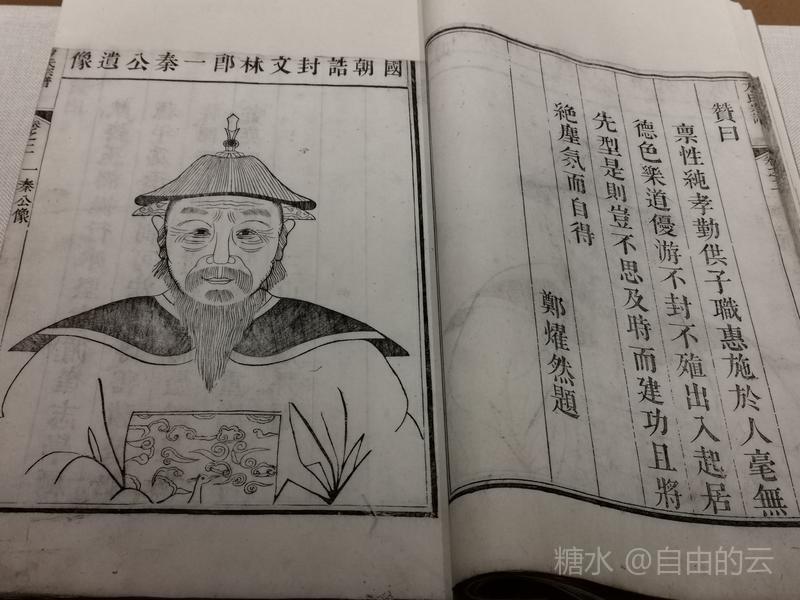 贊曰
禀性純孝勤供子職惠施於人毫無
德色樂道優游不封不殖出入起居
先型是則豈不思及時而建功且將
絶塵氛而自得
鄭燿然題
國朝誥封文林郎一秦公遺像
卷之二
一秦公像
糖水 @自由的云